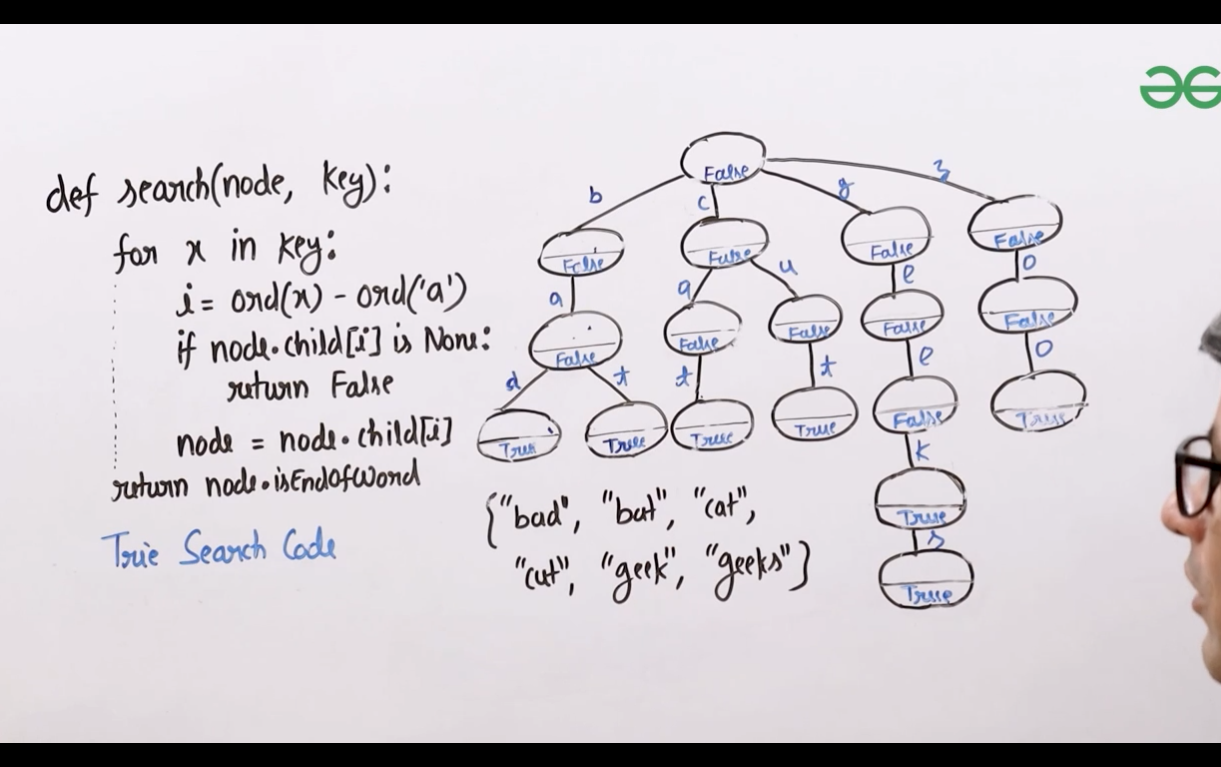 def search(node, key):
for x in key:
i = ord(x) - ord('a')
if node.child[i] is None:
return False
node = node.child[i]
return node.isEndOfWord
Trie Search Code
False
b
c
g
z
False
False
False
False
a
a
u
e
o
False
False
False
False
False
d
t
t
t
e
o
True
True
True
True
False
True
k
True
s
True
{"bad", "bat", "cat",
"cut", "geek", "geeks"}